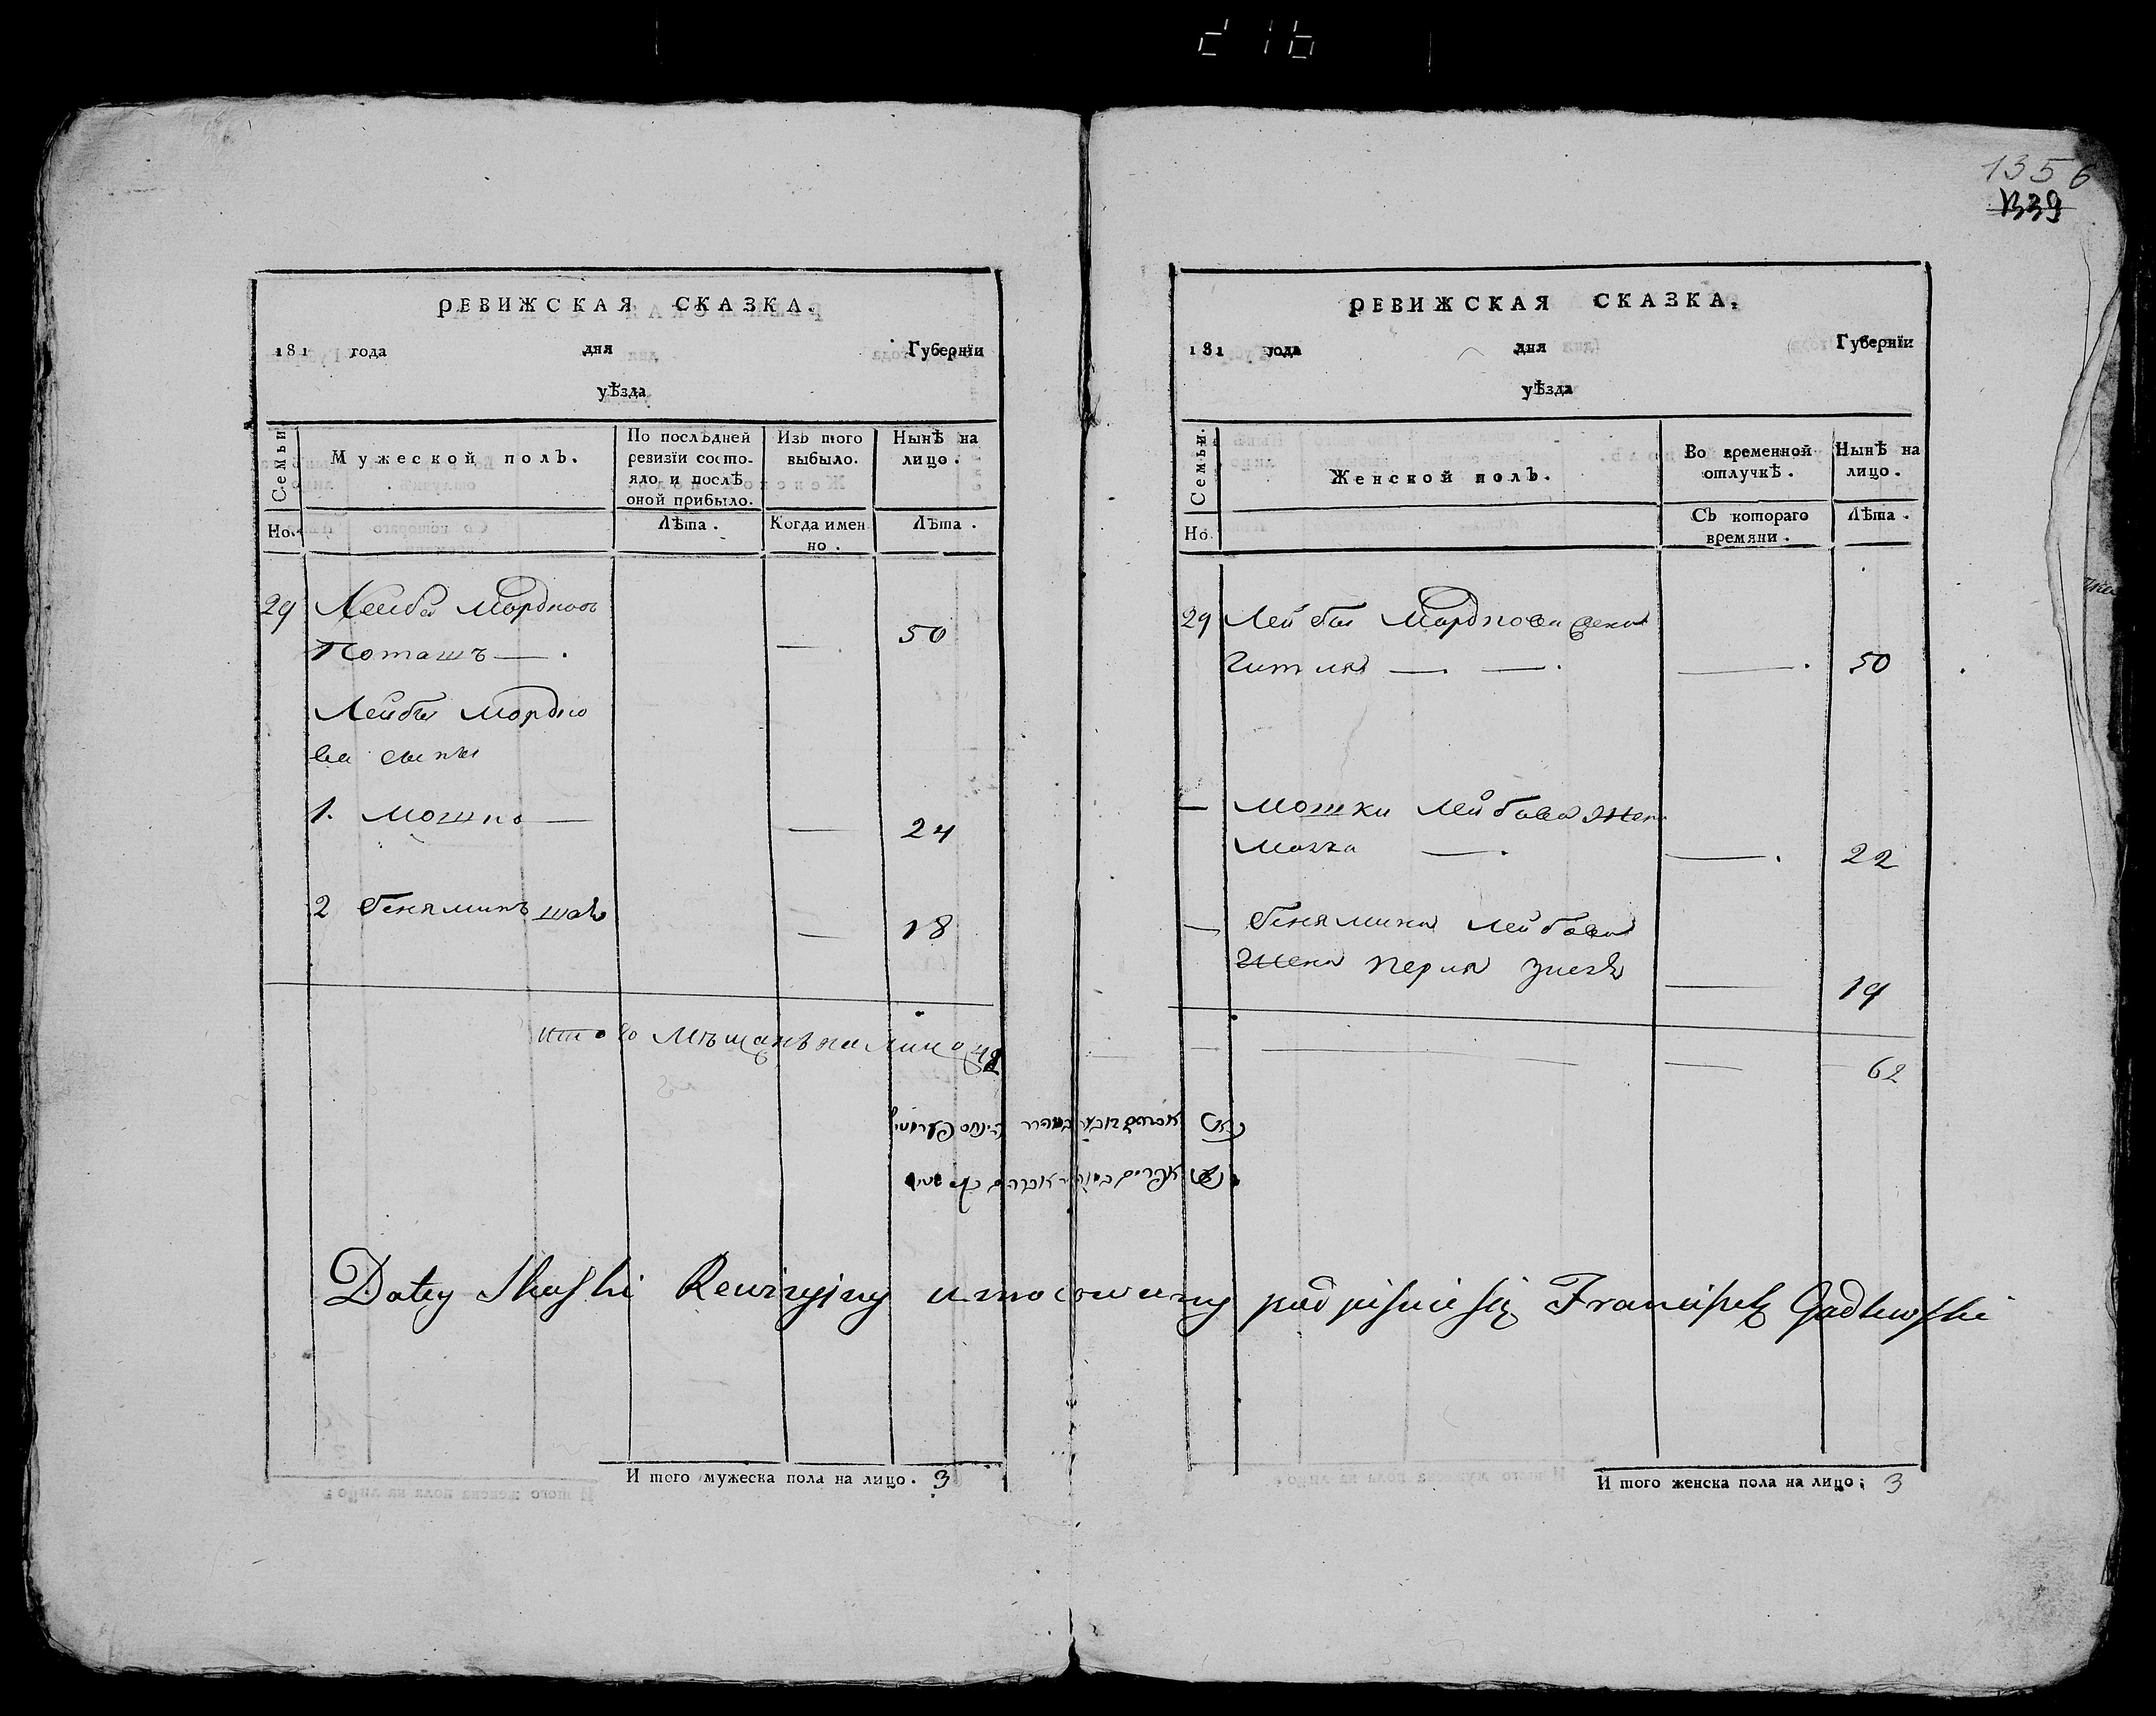 1356
1339
РЕВИЖСКАЯ СКАЗКА.
181 года дня Губернїи
уѣзда
Семьи
Мужеской полъ.
По послѣдней ревизїи состо-
яло и послѣ оной прибыло.
Изъ того выбыло.
Нынѣ на лицо.
Но.
Лѣта.
Когда имен
но.
Лѣта.
29 Лейба Мордковъ
Поташъ — . — 50
Лейбы Мордко
ва сыны
1. Мошко — — 24
2 Беняминъ — 18
Итого Мѣщанъ на лицо 48
И того мужеска пола на лицо. 3
РЕВИЖСКАЯ СКАЗКА.
181 года дня Губернїи
уѣзда
Семьи.
Женской полъ.
Во временной
отлучкѣ.
Нынѣ на
лицо.
Но.
Съ котораго
времяни.
Лѣта.
29 Лейбы Мордкова жена
Гитля — . — . — . 50
— Мошки Лейбова жен
— . — . 22
— Бенямина Лейбова
жена Перля — 19
— — — 62
Datey Skaski Rewizyiney umocowany podpisuie się Franciszek Gadlewski
И того женска пола на лицо; 3